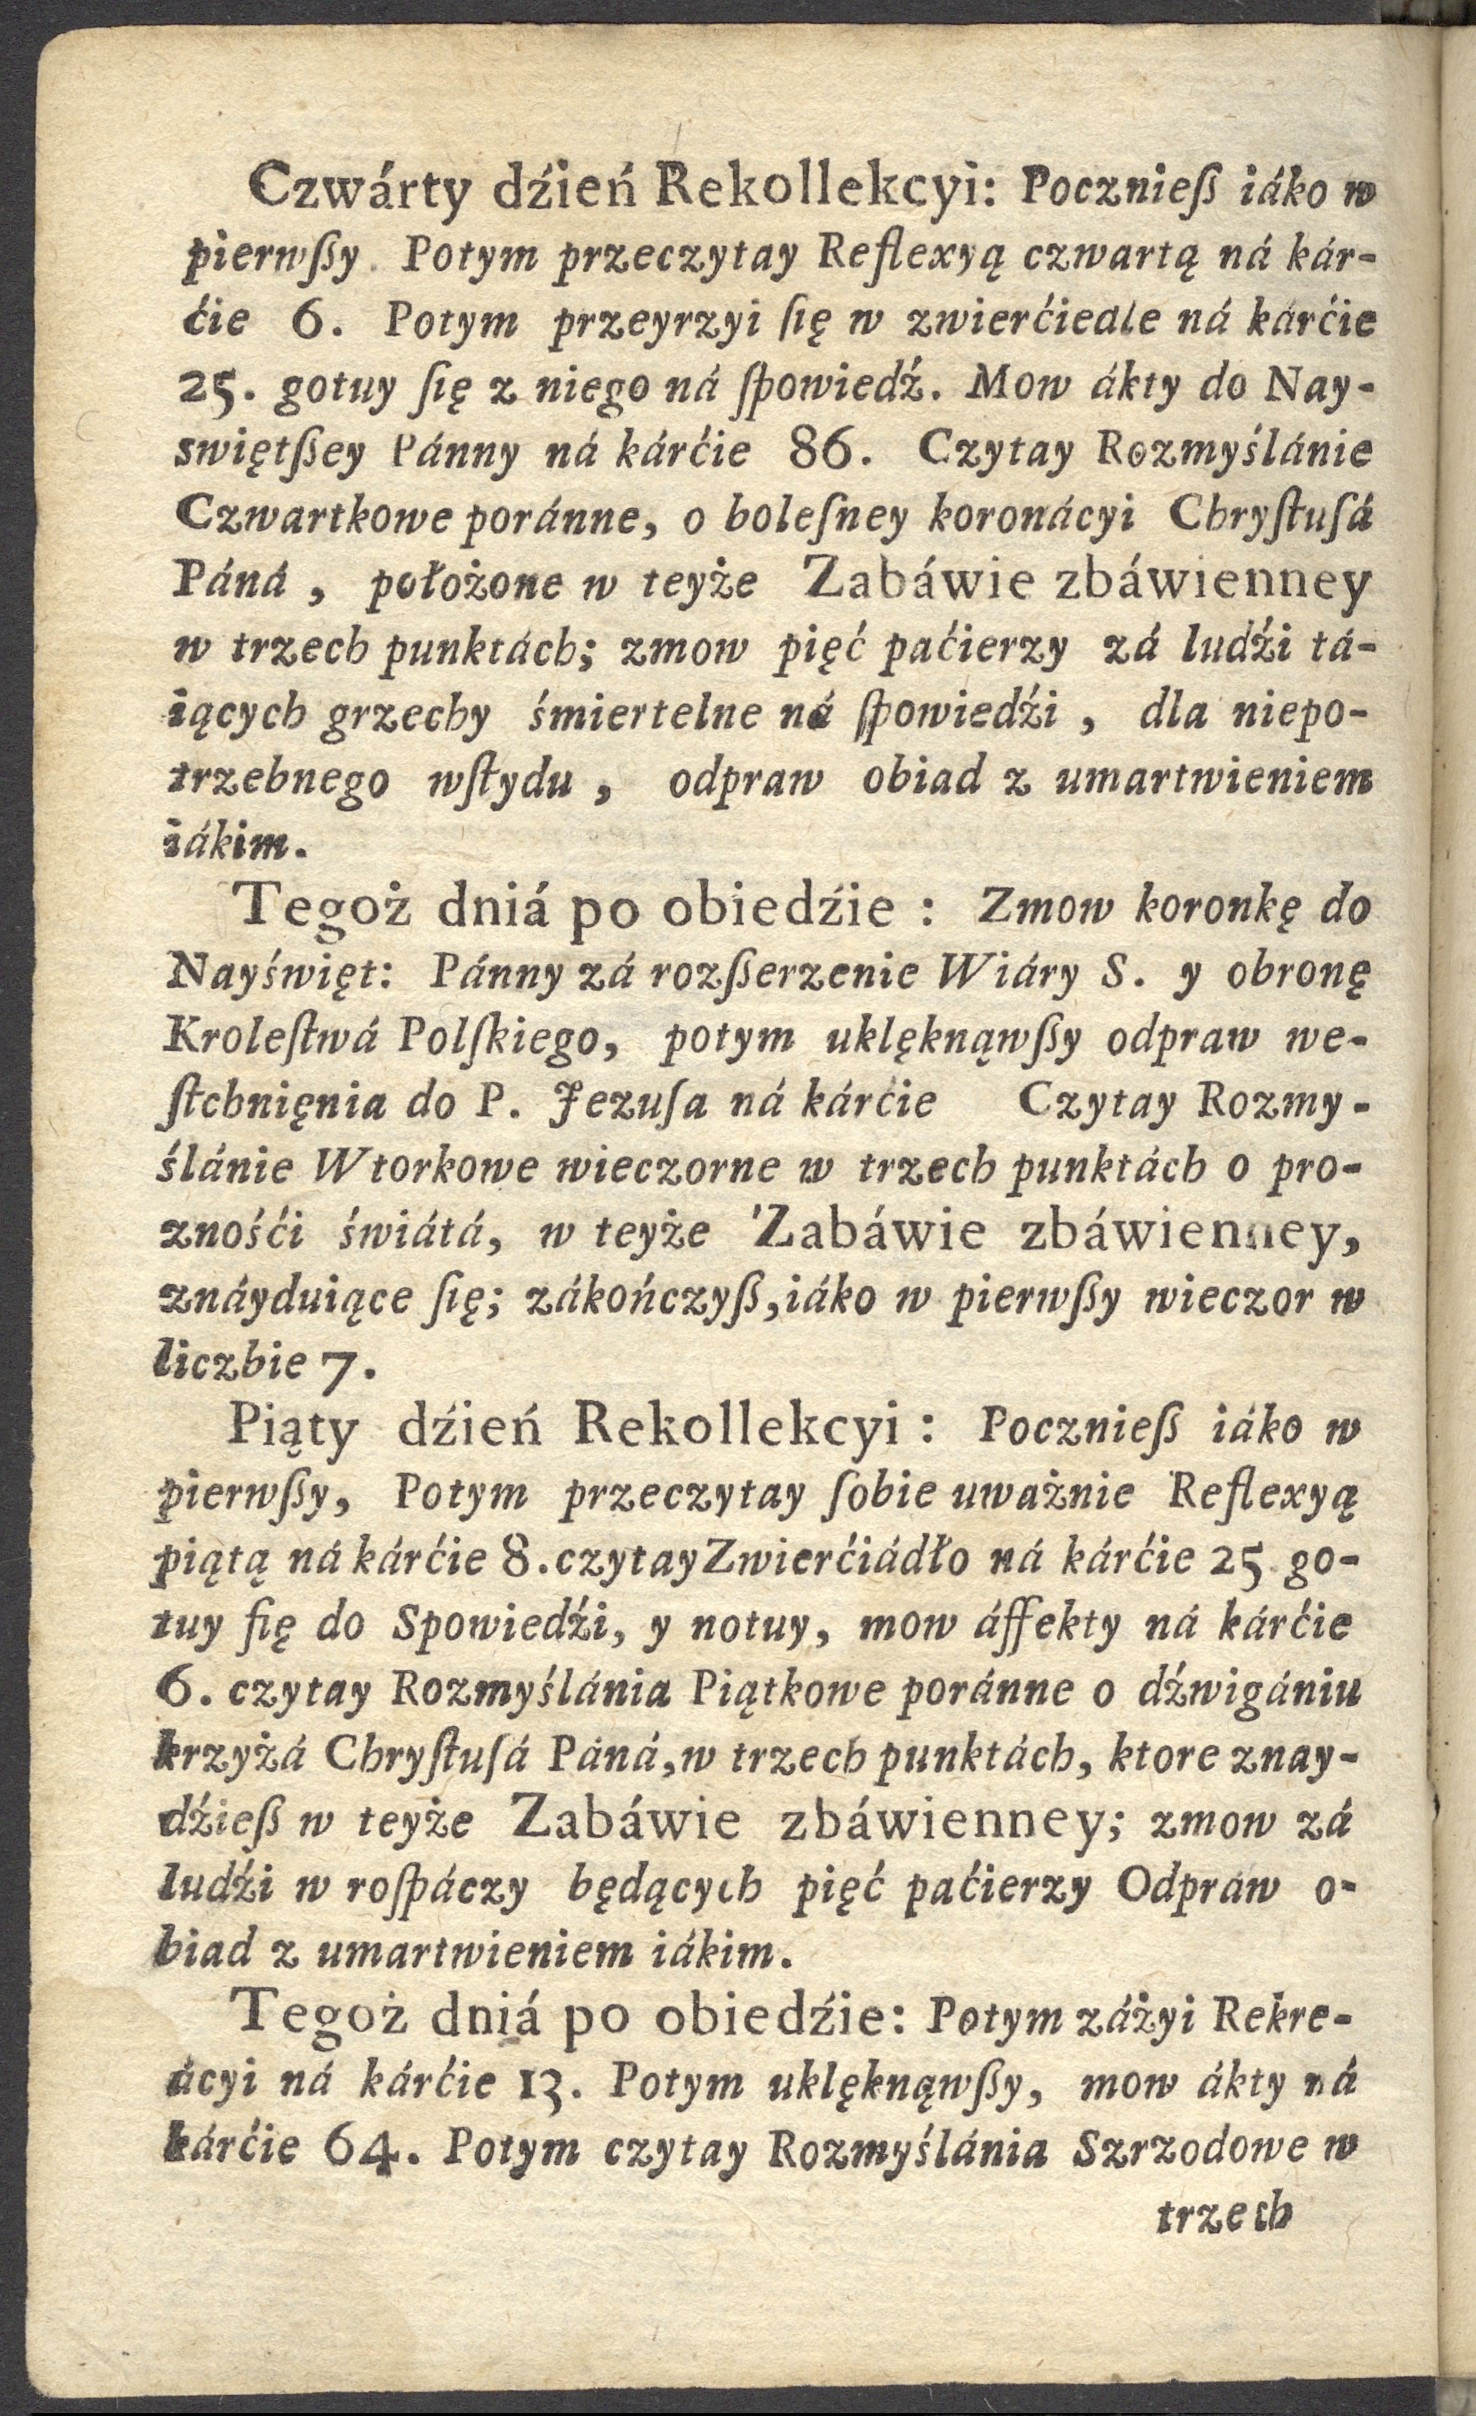 Czwárty dźień Rekollekcyi: Pocznieß iáko w
pierwßy. Potym przeczytay Reflexyą czwartą ná kár-
ćie 6. Potym przeyrzyi ſię w zwierćiedle ná kárćie
25. gotuy ſię z niego ná ſpowiedź. Mow ákty do Nay-
swiętßey Pánny ná kárćie 86. Czytay Rozmyślánie
Czwartkowe poránne, o boleſney koronácyi Chryſtuſá
Páná, położone w teyże Zabáwie zbáwienney
w trzech punktách; zmow pięć paćierzy zá ludźi tá-
iących grzechy śmiertelne ná ſpowiedźi, dla niepo-
trzebnego wſtydu, odpraw obiad z umartwieniem
iákim.
Tegoż dniá po obiedźie: Zmow koronkę do
Nayświęt: Pánny zá rozßerzenie Wiáry S. y obronę
Kroleſtwá Polſkiego, potym uklęknąwßy odpraw we-
ſtchnięnia do P. Jezuſa ná kárćie Czytay Rozmy-
ślánie Wtorkowe wieczorne w trzech punktách o pro-
znośći świátá, w teyże Zabáwie zbáwienney,
znáyduiące ſię; zákończyß, iáko w pierwßy wieczor w
liczbie 7.
Piąty dźień Rekollekcyi: Pocznieß iáko w
pierwßy, Potym przeczytay ſobie uważnie Reflexyą
piątą ná kárćie 8. czytay Zwierćiádło ná kárćie 25. go-
tuy ſię do Spowiedźi, y notuy, mow áffekty ná kárćie
6. czytay Rozmyślánia Piątkowe poránne o dźwigániu
krzyżá Chryſtuſá Páná, w trzech punktách, ktore znay-
dźieß w teyże Zabáwie zbáwienney; zmow zá
ludźi w roſpáczy będących pięć paćierzy Odpraw o-
biad z umartwieniem iákim.
Tegoż dniá po obiedźie: Potym záżyi Rekre-
ácyi ná kárćie 13. Potym uklęknąwßy, mow ákty ná
kárćie 64. Potym czytay Rozmyślánia Szrzodowe w
trzech